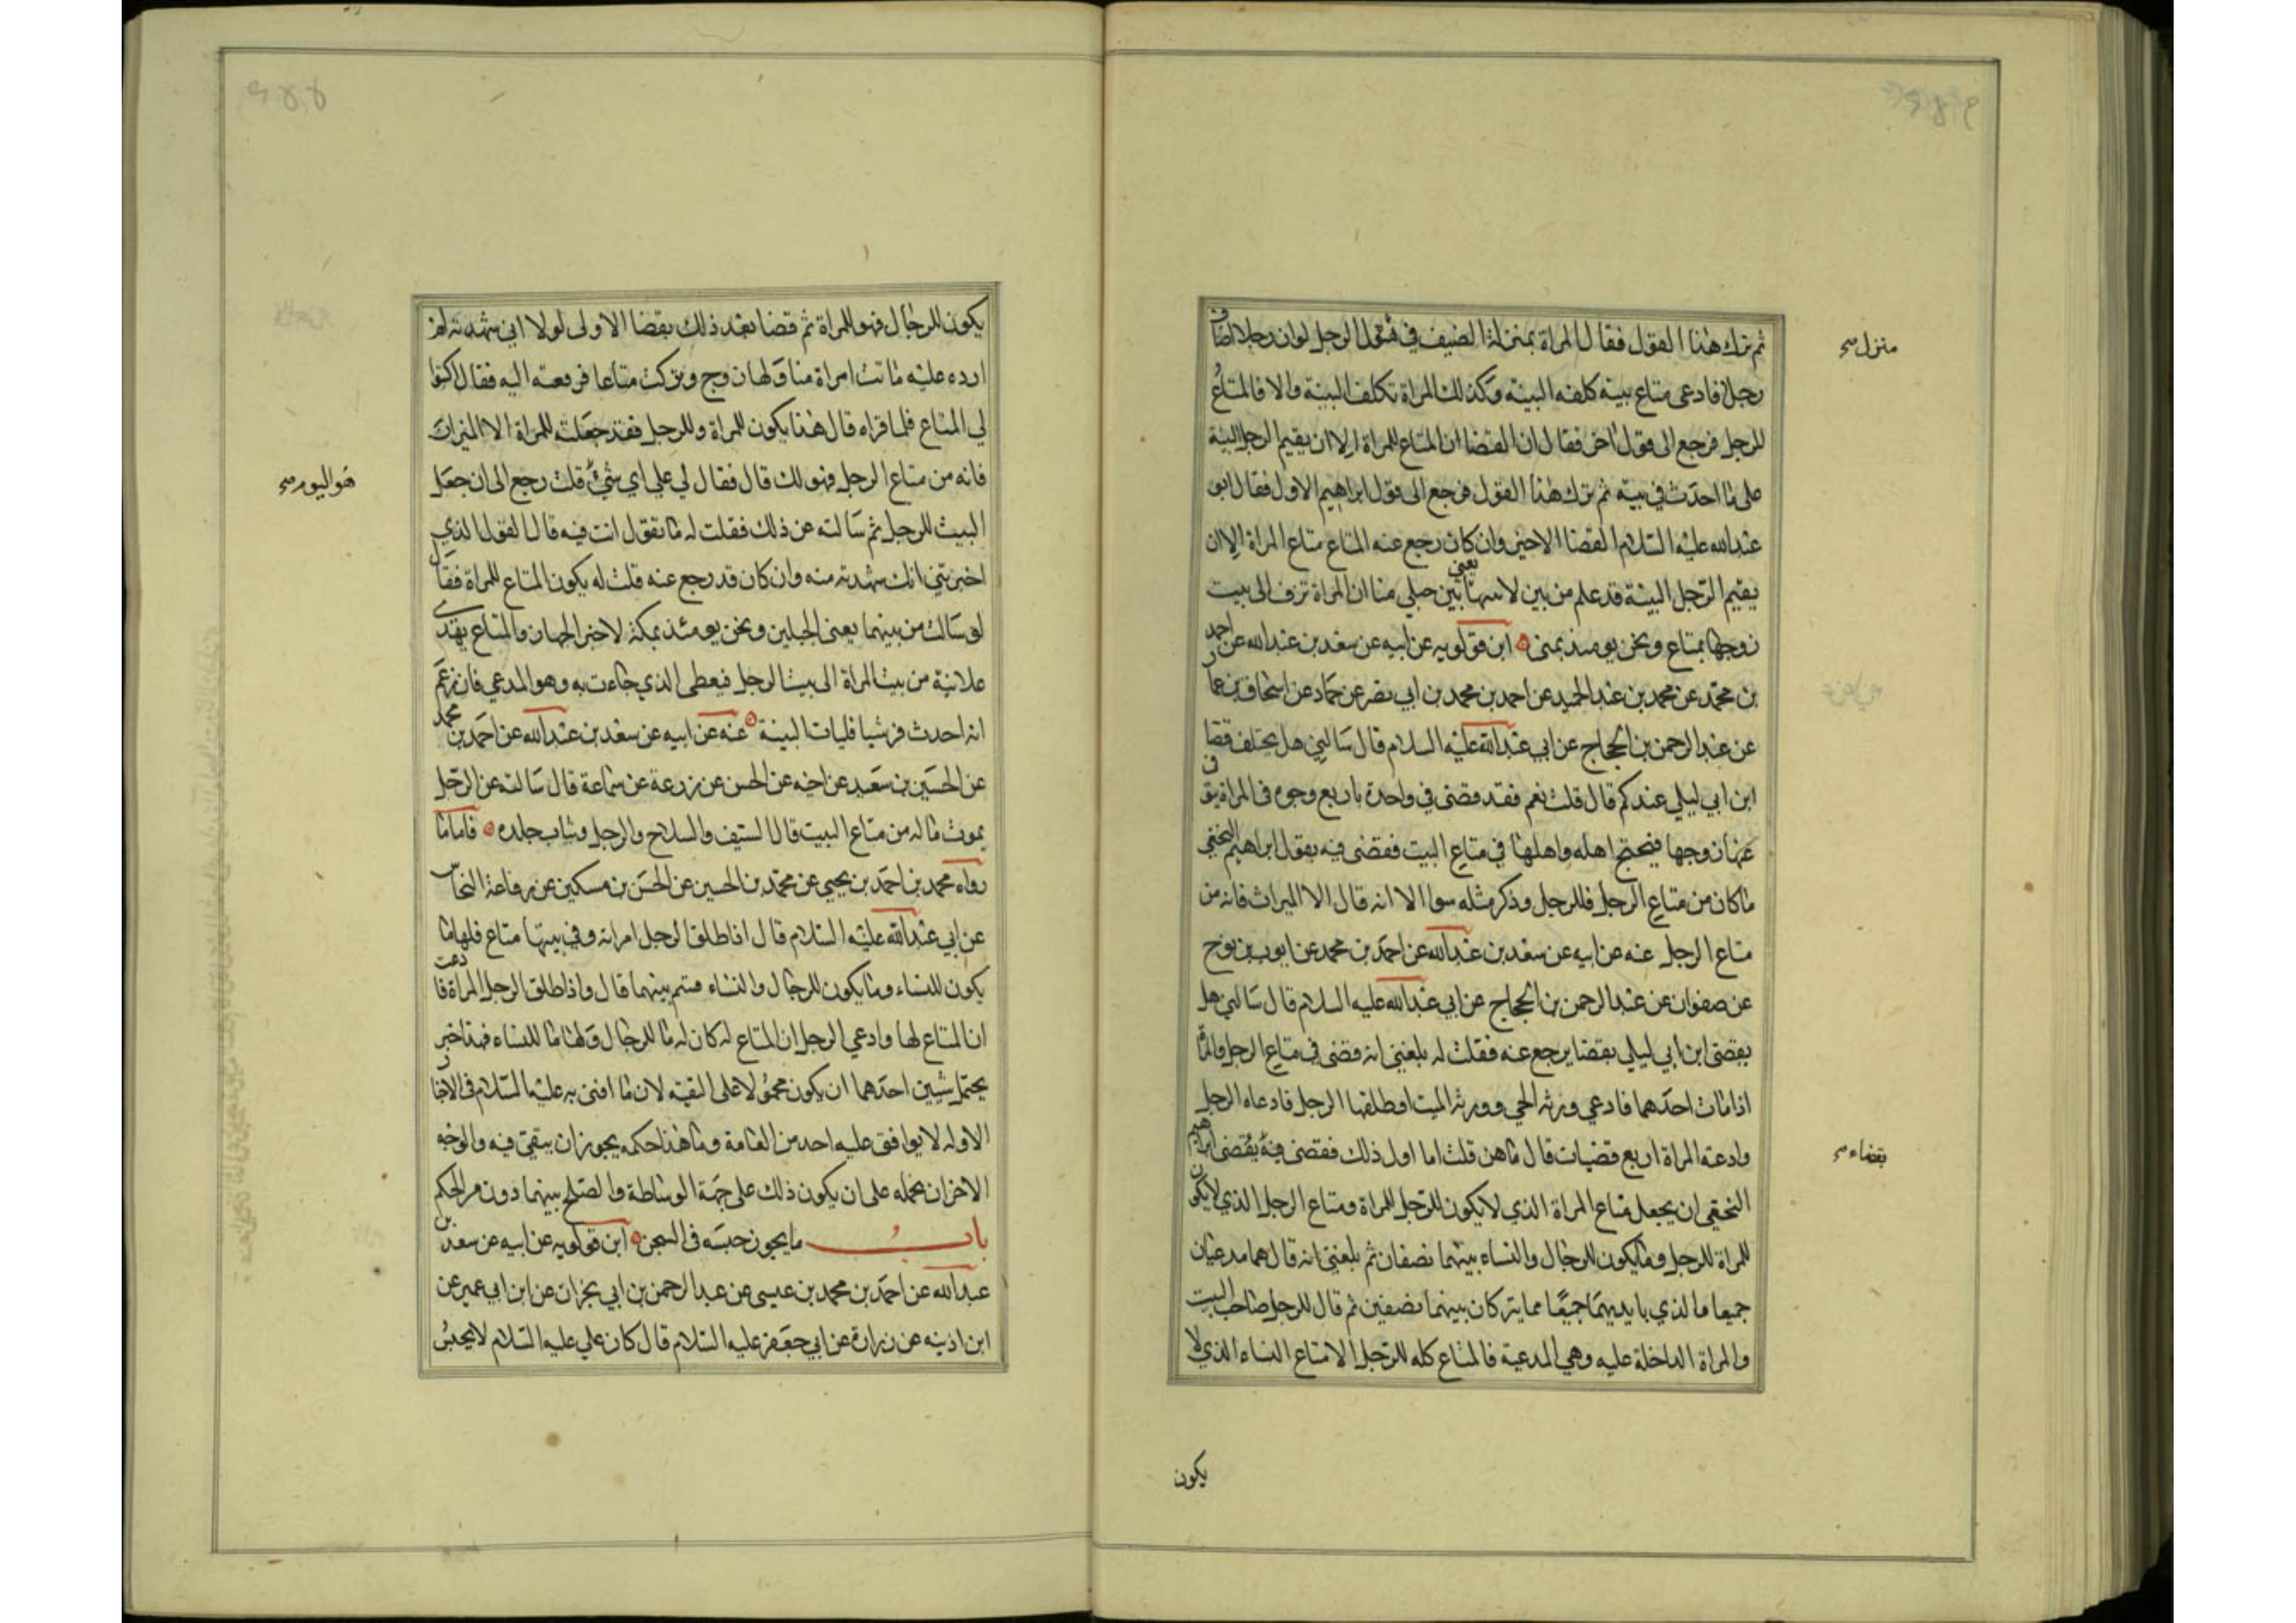 ثم ترك هذا القول فقال المراة بمنزلة الضيف في منزل الرجل لوان رجلا اضاف
منزل صح
رجلا فادعى متاع بيته كلفه البينة وكذلك المراة تكلف البينة والا فالمتاع
للرجل فرجع الى قول اخر فقال ان القضا ان المتاع للمراة الا ان يقيم الرجل البينة
على ما احدث في بيته ثم ترك هذا القول فرجع الى قول ابراهيم الاول فقال ابو
عبدالله عليه السلام القضا الاخير وان كان رجع عنه المتاع متاع المراة الا ان
يقيم الرجل البينة قد علم من بين لابتيها يعني بين جبلي منا ان المراة تزف الى بيت
زوجها بمتاع ونحن يومئذ بمنى ابن قولويه عن ابيه عن سعد بن عبد الله عن احمد
بن محمد عن محمد بن عبد الحميد عن احمد بن محمد بن ابي نصر عن حماد عن اسحاق بن عمار
عن عبد الرحمن بن الحجاج عن ابي عبدالله عليه السلام قال سالني هل يختلف قضا
ابن ابي ليلى عندكم قال قلت نعم فقد قضى في واحدة باربع وجوه في المراة يتوفى
عنها زوجها فيحتج اهله واهلها في متاع البيت فقضى فيه بقول ابراهيم النخعي
ما كان من متاع الرجل فللرجل وذكر مثله سوا الا انه قال الا الميراث فانه من
متاع الرجل عنه عن ابيه عن سعد بن عبدالله عن احمد بن محمد عن ايوب بن نوح
عن صفوان عن عبد الرحمن بن الحجاج عن ابي عبدالله عليه السلام قال سالني هل
يقضى ابن ابي ليلى بقضا يرجع عنه فقلت له بلغني انه قضى في متاع الرجل والمراة
اذا مات احدهما فادعي ورثة الحي وورثة الميت او طلقها الرجل فادعاه الرجل
وادعته المراة اربع قضيات قال ما هن قلت اما اول ذلك فقضى فيه بقضى ابراهيم
بقضاء صح
النخعي ان يجعل متاع المراة الذي لا يكون للرجل للمراة ومتاع الرجل الذي لا يكون
للمراة للرجل وما يكون للرجال والنساء بينهما نصفان ثم بلغني انه قال هما مدعيان
جميعا فالذي بايديهما جميعا مما يتركان بينهما نصفين ثم قال للرجل صاحب البيت
والمراة الداخلة عليه وهي المدعية فالمتاع كله للرجل الا متاع النساء الذي لا
يكون
يكون للرجال فهو للمراة ثم قضا بعد ذلك بقضا الاولى لولا اني شهدته لم
ارده عليه ماتت امراة منا ولها زوج وتركت متاعا فرفعته اليه فقال اكتبوا
لي المتاع فلما قراه قال هذا يكون للمراة وللرجل فقد جعلته للمراة الا الميزان
فانه من متاع الرجل فهو لك قال فقال لي على اي شئ قلت رجع الى ان جعل
هو اليوم صح
البيت للرجل ثم سالته عن ذلك فقلت له ما تقول انت فيه قال القول الذي
اخبرتني انك شهدته منه وان كان قد رجع عنه قلت له يكون المتاع للمراة فقال
لو سالت من بينهما يعني الجبلين ونحن يومئذ بمكة لاخبر الجهاز والمتاع يهدى
علانية من بيت المراة الى بيت الرجل فيعطى الذي جاءت به وهو المدعي فان زعم
انه احدث فيه شيا فليات البينة عنه عن ابيه عن سعد بن عبدالله عن احمد بن محمد
عن الحسين بن سعيد عن اخيه عن الحسن عن زرعة عن سماعة قال سالته عن الرجل
يموت ماله من متاع البيت قال السيف والسلاح والرحل وثياب جلده فاما ما
رواه محمد بن احمد بن يحيى عن محمد بن الحسين عن الحسن بن مسكين عن رفاعة النخاس
عن ابي عبدالله عليه السلام قال اذا طلق الرجل امراته وفي بيتها متاع فلها ما
يكون للنساء وما يكون للرجال والنساء قسم بينهما قال واذا طلق الرجل المراة فادعت
ان المتاع لها وادعي الرجل ان المتاع له كان له ما للرجال ولها ما للنساء فهذا خبر
يحتمل شيين احدهما ان يكون محمولا على التقيه لان ما افتى به عليه السلام في الاخبار
الاوله لا يوافق عليه احد من العامة وما هذا حكمه يجوز ان يتقي فيه والوجه
الاخر ان نحمله على ان يكون ذلك على جهة الوساطة والصلح بينهما دون مر الحكم
باب ما يجوز حبسه في السجن ابن قولويه عن ابيه عن سعد بن
عبدالله عن احمد بن محمد بن عيسى عن عبد الرحمن بن ابي نجران عن ابن ابي عمير عن
ابن اذينه عن زرارة عن ابي جعفر عليه السلام قال كان علي عليه السلام لا يحبس